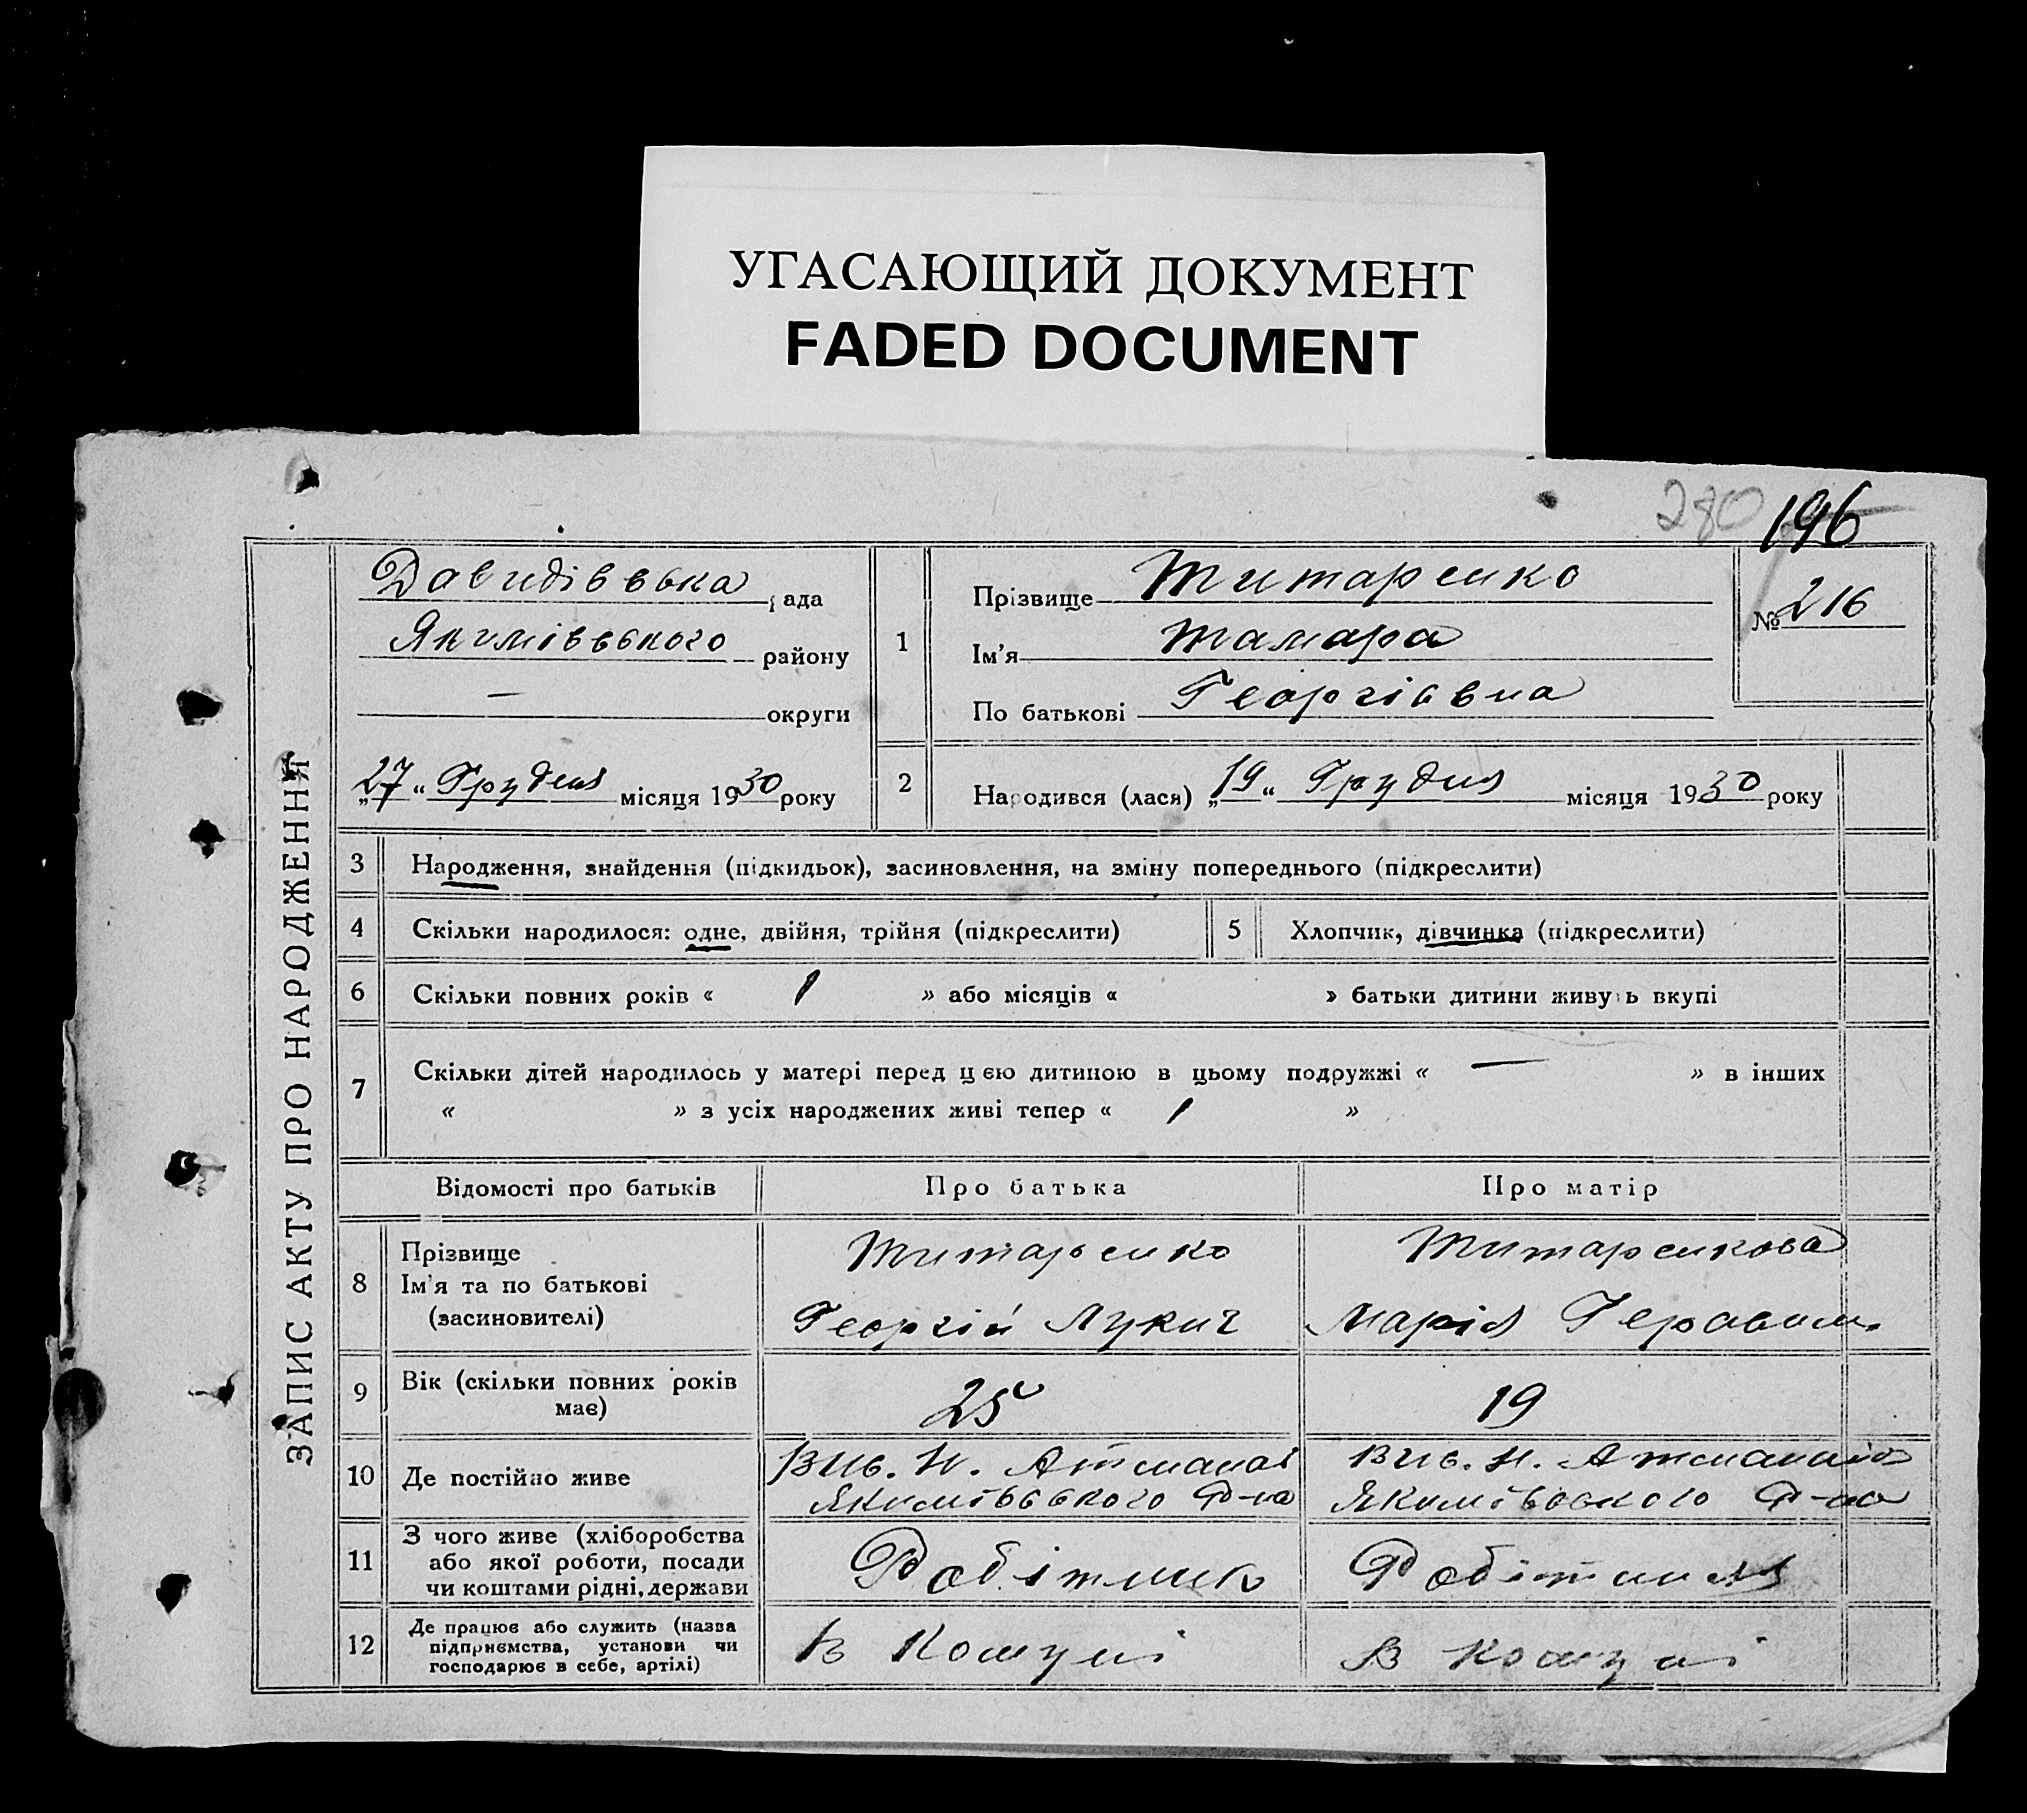 УГАСАЮЩИЙ ДОКУМЕНТ
FADED DOCUMENT
280 196
ЗАПИС АКТУ ПРО НАРОДЖЕННЯ
Давидівська рада
Якимівського району
— округи
„27“ Грудня місяця 1930 року
1
Прізвище Титаренко
Ім’я Тамара
По батькові Георгіівна
№ 216
2
Народився (лася) „19“ Грудня місяця 1930 року
3 Народження, знайдення (підкидьок), засиновлення, на зміну попереднього (підкреслити)
4 Скільки народилося: одне, двійня, трійня (підкреслити)
5 Хлопчик, дівчинка (підкреслити)
6 Скільки повних років « 1 » або місяців « » батьки дитини живуть вкупі
7 Скільки дітей народилось у матері перед цею дитиною в цьому подружжі « — » в інших
« » з усіх народжених живі тепер « 1 »
Відомості про батьків
Про батька
Про матір
8
Прізвище
Ім’я та по батькові
(засиновителі)
Титаренко
Георгій Лукич
Титаренкова
Марія
9
Вік (скільки повних років
має)
25
19
10 Де постійно живе
Атманаі
Якимівського Р-на
Якимівського Р-на
11
З чого живе (хліборобства
або якої роботи, посади
чи коштами рідні, держави
Робітник
Робітниця
12
Де працює або служить (назва
підприємства, установи чи
господарює в себе, артілі)
В Комуні
В Комуні